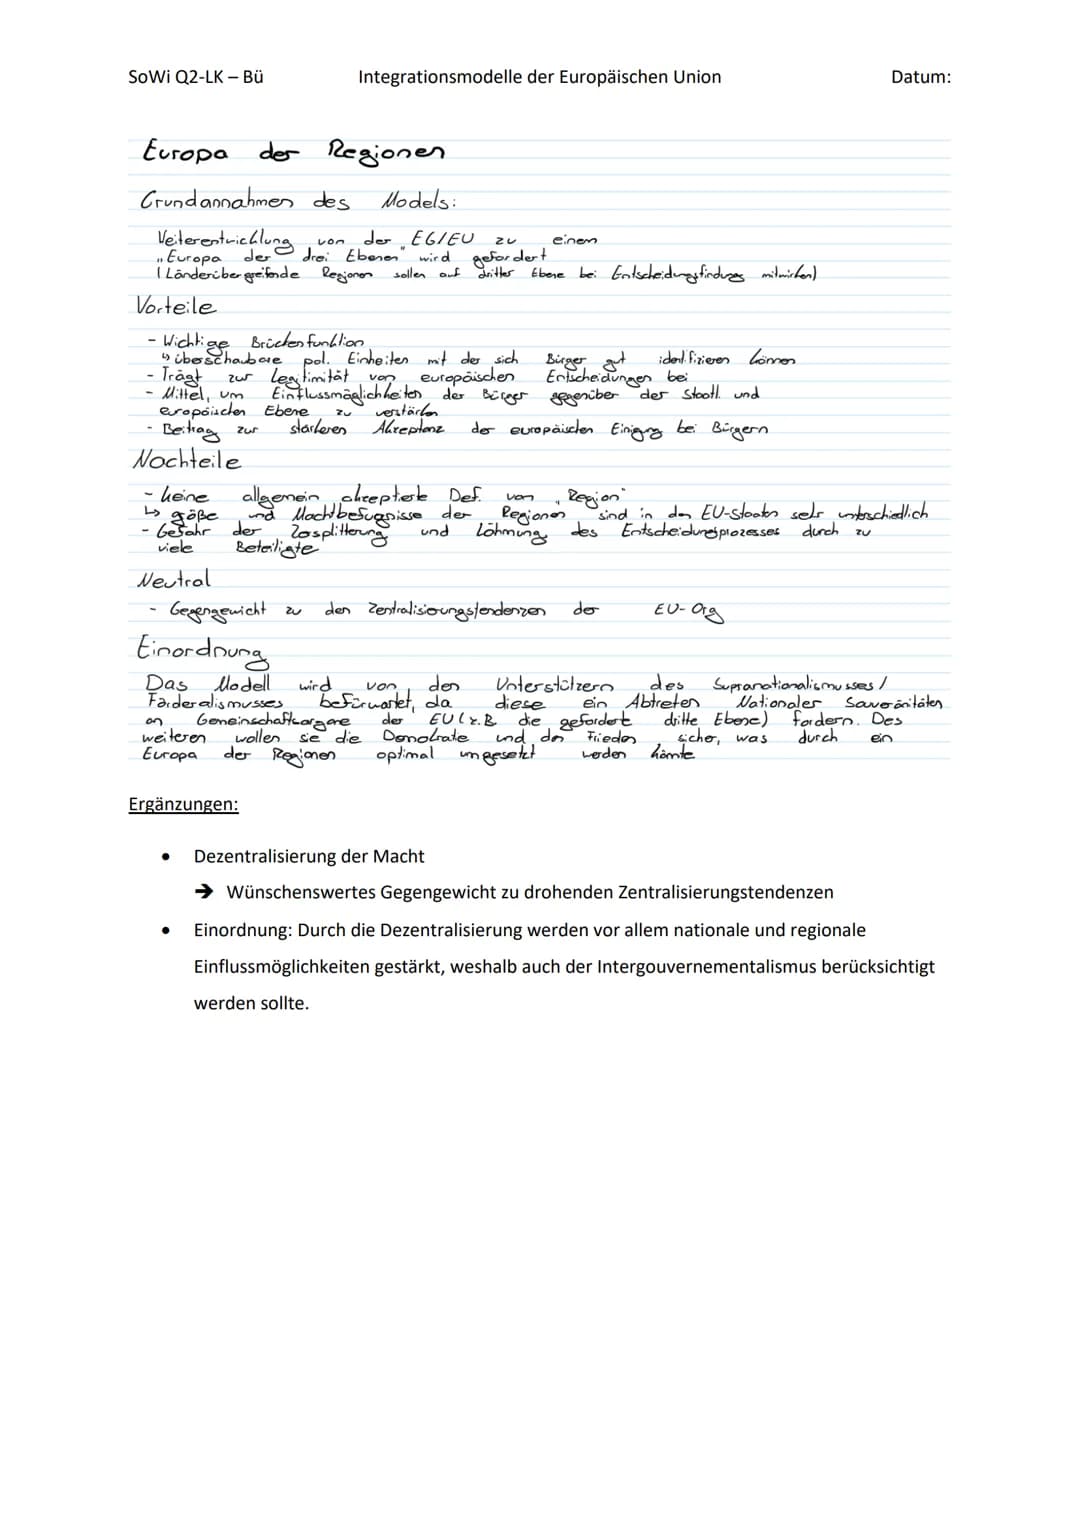 SoWi Q2-LK – Bü Integrationsmodelle der Europäischen Union Datum:
Europa der Regionen
Grundannahmen des Models:
Weiterentwicklung von der EG/EU zu einem
„Europa der drei Ebenen" wird gefordert
(Länderübergreifende Regionen sollen auf dritter Ebene bei Entscheidungsfindungs mitwirken)
Vorteile
- Wichtige Brückenfunktion
↳ überschaubare pol. Einheiten mit der sich Bürger gut identifizieren können
- Trägt zur Legitimität von europäischen Entscheidungen bei
- Mittel, um Einflussmöglichkeiten der Bürger gegenüber der Staatl. und
europäischen Ebene zu verstärken
- Beitrag zur stärkeren Akzeptanz der europäischen Einigung bei Bürgern
Nachteile
- keine allgemein akzeptierte Def. von „Region"
↳ größe und Machtbefugnisse der Regionen sind in den EU-Staaten sehr unterschiedlich
- Gefahr der Zersplitterung und Lähmung des Entscheidungsprozesses durch zu
viele Beteiligte
Neutral
- Gegengewicht zu den Zentralisierungstendenzen der EU-Org
Einordnung
Das Modell wird von den Unterstützern des Supranationalismusses /
Förderalismusses befürwortet, da diese ein Abtreten Nationaler Souveränitäten
an Gemeinschaftsorgane der EU (z.B die gefordert dritte Ebene) fordern. Des
weiteren wollen sie die Demokratie und den Frieden sicher, was durch ein
Europa der Regionen optimal umgesetzt werden könnte
Ergänzungen:
• Dezentralisierung der Macht
➔ Wünschenswertes Gegengewicht zu drohenden Zentralisierungstendenzen
• Einordnung: Durch die Dezentralisierung werden vor allem nationale und regionale
Einflussmöglichkeiten gestärkt, weshalb auch der Intergouvernementalismus berücksichtigt
werden sollte.